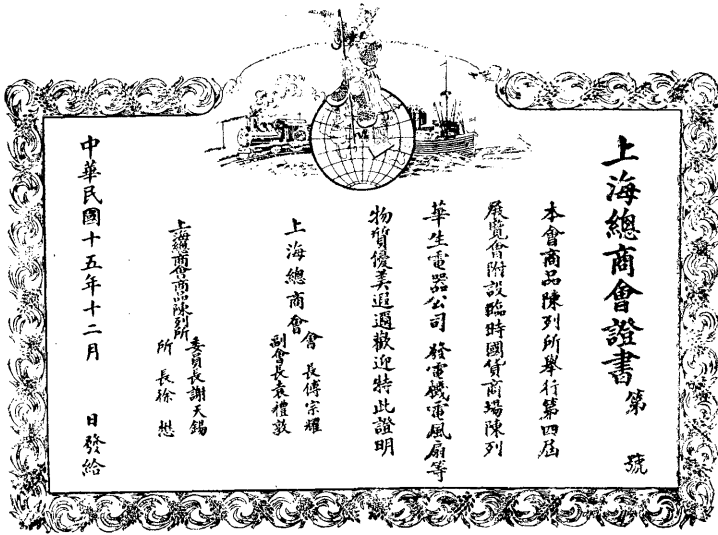 上海總商會證書 第 號
本會商品陳列所舉行第四屆
展覽會附設臨時國貨商場陳列
華生電器公司 發電機電風扇等
物質優美遐邇歡迎特此證明
上海總商會 會長傅宗耀
副會長袁禮敦
上海總商會商品陳列所 委員長謝天錫
所長徐懋
中華民國十五年十二月 日發給